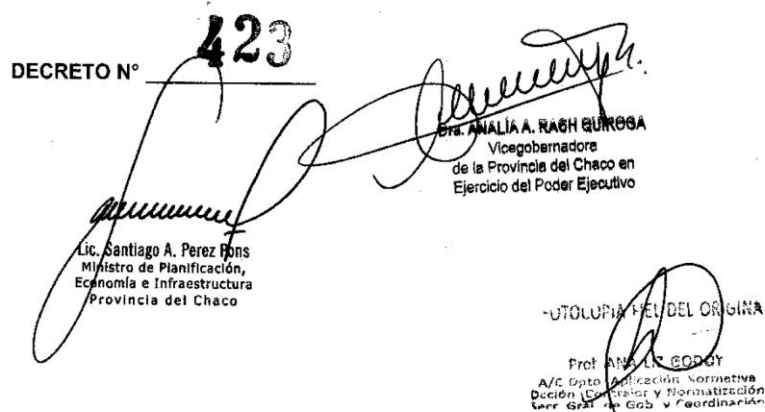 DECRETO N° 423
Dra. ANALÍA A. RACH QUIROGA
Vicegobernadora
de la Provincia del Chaco en
Ejercicio del Poder Ejecutivo
Lic. Santiago A. Perez Pons
Ministro de Planificación,
Economía e Infraestructura
Provincia del Chaco
FOTOCOPIA FIEL DEL ORIGINA
Prof. ANA LIZ GODOY
A/C Dpto Aplicación Normativa
Dcción Contralor y Normatización
Secr Gral de Gob y Coordinación